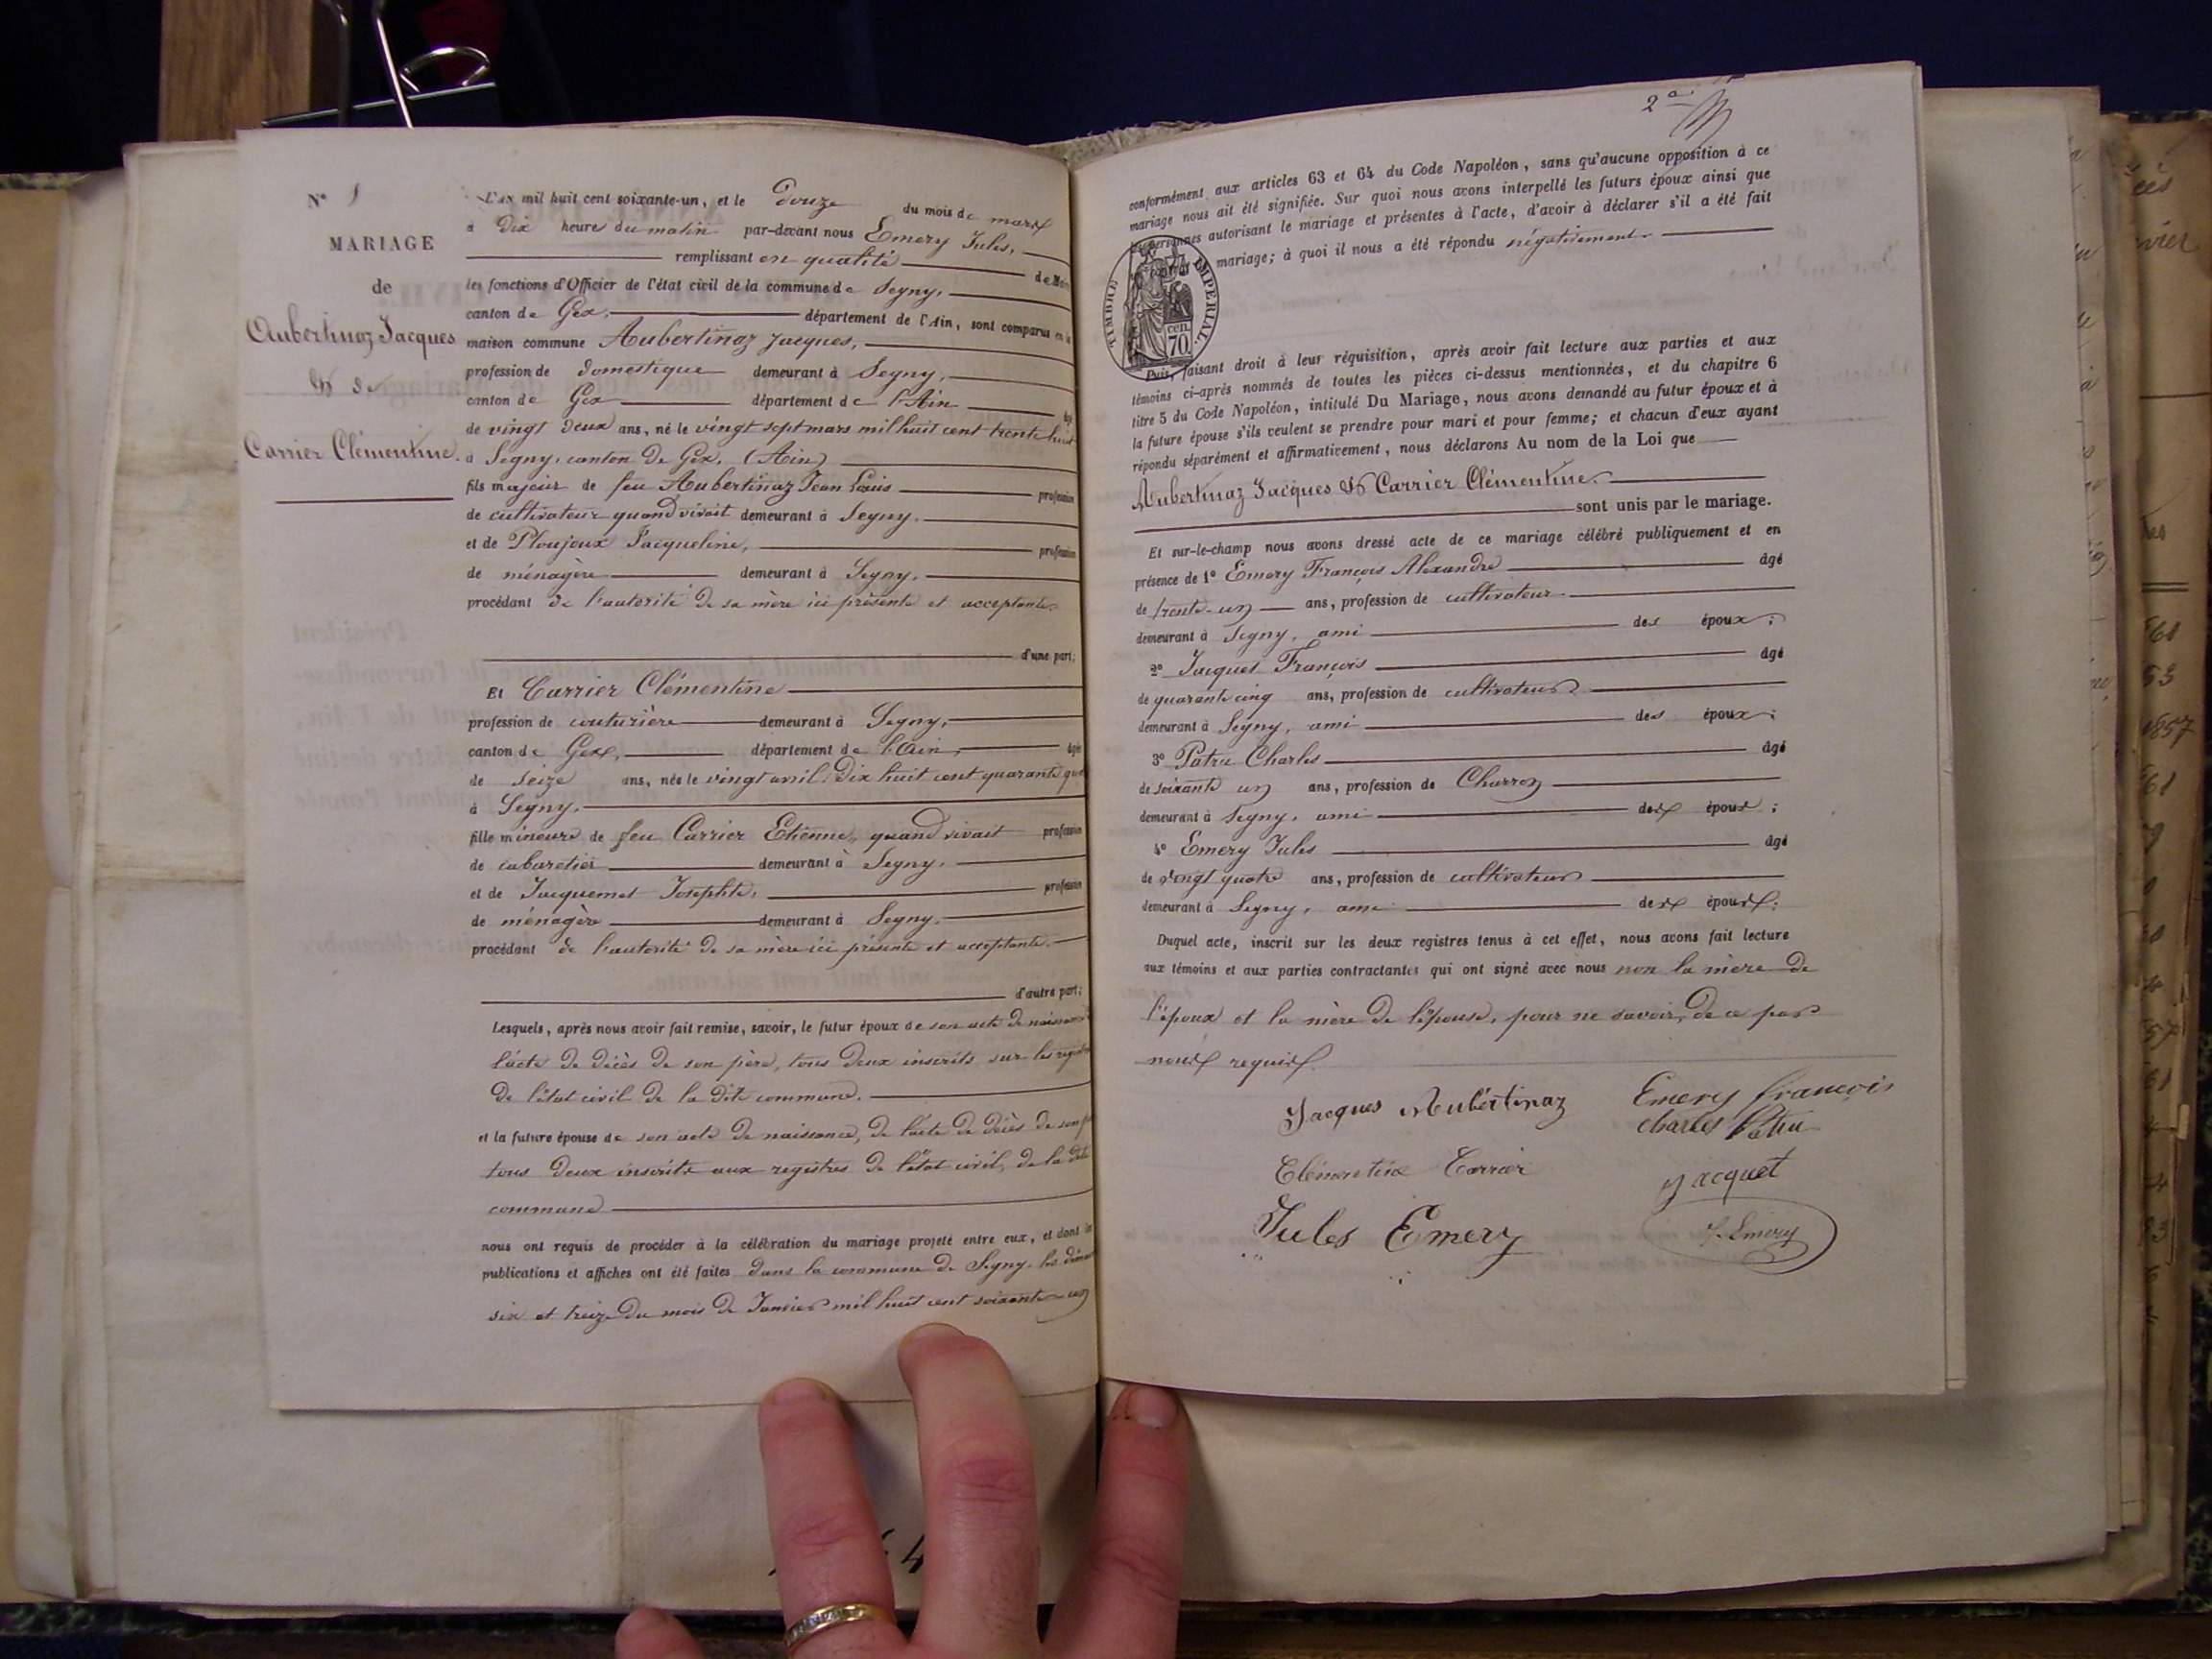 N° 1
MARIAGE
de
Aubertinaz Jacques
& de
Carrier Clémentine.
L'AN mil huit cent soixante-un, et le Douze du mois de mars
à Dix heure du matin par-devant nous Emery Jules,
remplissant en qualité de Maire
les fonctions d'Officier de l'état civil de la commune de Segny,
canton de Gex, département de l'Ain, sont comparus en la
maison commune Aubertinaz Jacques,
profession de domestique demeurant à Segny,
canton de Gex département de l'Ain âgé
de vingt deux ans, né le vingt sept mars mil huit cent trente huit
à Segny, canton de Gex, (Ain)
fils majeur de feu Aubertinaz Jean Louis profession
de cultivateur quand vivait demeurant à Segny.
et de Ploujoux Jacqueline, profession
de ménagère demeurant à Segny.
procédant de l'autorité de sa mère ici présente et acceptante.
d'une part;
Et Carrier Clémentine
profession de couturière demeurant à Segny,
canton de Gex, département de l'Ain, âgée
de seize ans, née le vingt avril dix huit cent quarante qua
à Segny.
fille mineure de feu Carrier Etienne, quand vivait profession
de cabaretier demeurant à Segny.
et de Jacquemet Josephte, profession
de ménagère demeurant à Segny.
procédant de l'autorité de sa mère ici présente et acceptante.
d'autre part;
Lesquels, après nous avoir fait remise, savoir, le futur époux de son acte de naissance
l'acte de décès de son père, tous deux inscrits sur les registres
de l'état civil de la dite commune.
et la future épouse de son acte de naissance, de l'acte de décès de son
tous deux inscrits aux registres de l'état civil, de la dite
commune
nous ont requis de procéder à la célébration du mariage projeté entre eux, et dont les
publications et affiches ont été faites dans la commune de Segny, les
six et treize du mois de Janvier mil huit cent soixante-un
2e
conformément aux articles 63 et 64 du Code Napoléon, sans qu'aucune opposition à ce
mariage nous ait été signifiée. Sur quoi nous avons interpellé les futurs époux ainsi que
les personnes autorisant le mariage et présentes à l'acte, d'avoir à déclarer s'il a été fait
un contrat de mariage; à quoi il nous a été répondu négativement.
TIMBRE IMPERIAL
70 cen.
Puis, faisant droit à leur réquisition, après avoir fait lecture aux parties et aux
témoins ci-après nommés de toutes les pièces ci-dessus mentionnées, et du chapitre 6
titre 5 du Code Napoléon, intitulé Du Mariage, nous avons demandé au futur époux et à
la future épouse s'ils veulent se prendre pour mari et pour femme; et chacun d'eux ayant
répondu séparément et affirmativement, nous déclarons Au nom de la Loi que
Aubertinaz Jacques & Carrier Clémentine.
sont unis par le mariage.
Et sur-le-champ nous avons dressé acte de ce mariage célébré publiquement et en
présence de 1° Emery François Alexandre âgé
de trente-un ans, profession de cultivateur.
demeurant à Segny, ami des époux;
2° Jacquet François âgé
de quarante cinq ans, profession de cultivateur
demeurant à Segny, ami des époux;
3° Patru Charles âgé
de soixante un ans, profession de Charron
demeurant à Segny, ami des époux;
4° Emery Jules âgé
de vingt quatre ans, profession de cultivateur
demeurant à Segny, ami des époux;
Duquel acte, inscrit sur les deux registres tenus à cet effet, nous avons fait lecture
aux témoins et aux parties contractantes qui ont signé avec nous non la mère de
l'époux et la mère de l'épouse, pour ne savoir, de ce par
nous requis
Jacques Aubertinaz Emery françois
charles Patru
Clémentine Carrier Jacquet
Jules Emery J. Emery